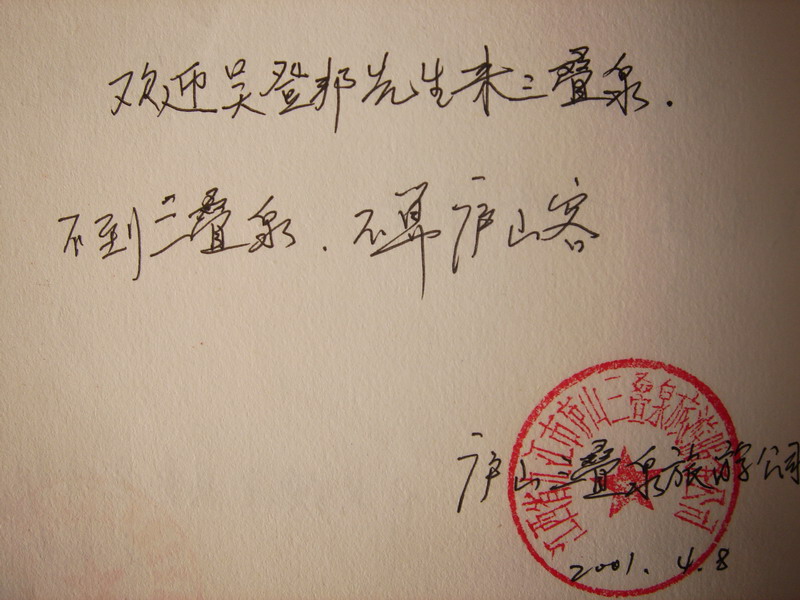 欢迎吴登邦先生来三叠泉.
不到三叠泉.不算庐山客
江西省九江市庐山三叠泉旅游
公司
庐山三叠泉旅游公司
2001.4.8